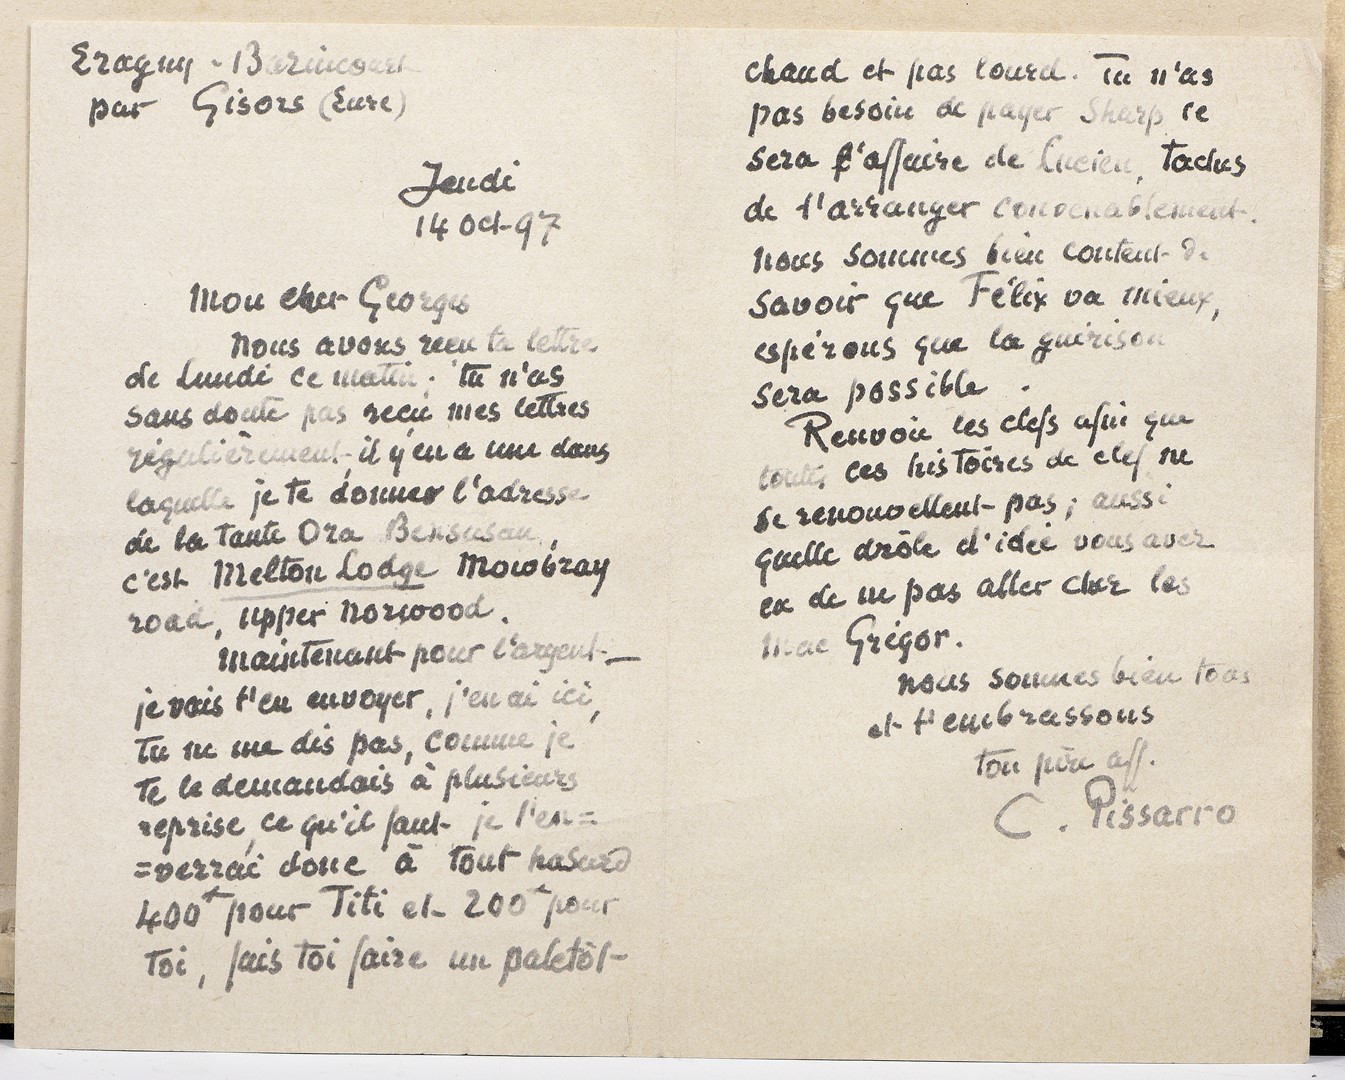 Eragny - Bazincourt
par Gisors (Eure)
Jeudi
14 Oct-97
Mon cher Georges
Nous avons recu ta lettre
de lundi ce matin; tu n'as
sans doute pas recu mes lettres
régulièrement, il y en a une dans
laquelle je te donner l'adresse
de la tante Ora Bensusan,
c'est Melton Lodge Mowbray
road, upper Norwood.
Maintenant pour l'argent-
je vais t'en envoyer, j'en ai ici,
Tu ne me dis pas, comme je
te le demandais à plusieurs
reprise, ce qu'il faut je l'en=
=verrai donc à tout hasard
400f pour Titi et 200f pour
Toi, fais toi faire un paletôt-
chaud et pas lourd. Tu n'as
pas besoin de payer Sharp ce
sera l'affaire de Lucien, taches
de t'arranger convenablement.
Nous sommes bien content de
savoir que Félix va mieux,
espérons que la guérison
sera possible.
Renvoie les clefs afin que
toutes ces histoires de clef ne
se renouvellent pas; aussi
quelle drôle d'idée vous avez
eu de ne pas aller chez les
Mac Grégor.
Nous sommes bien tous
et t'embrassons
ton père aff.
C. Pissarro